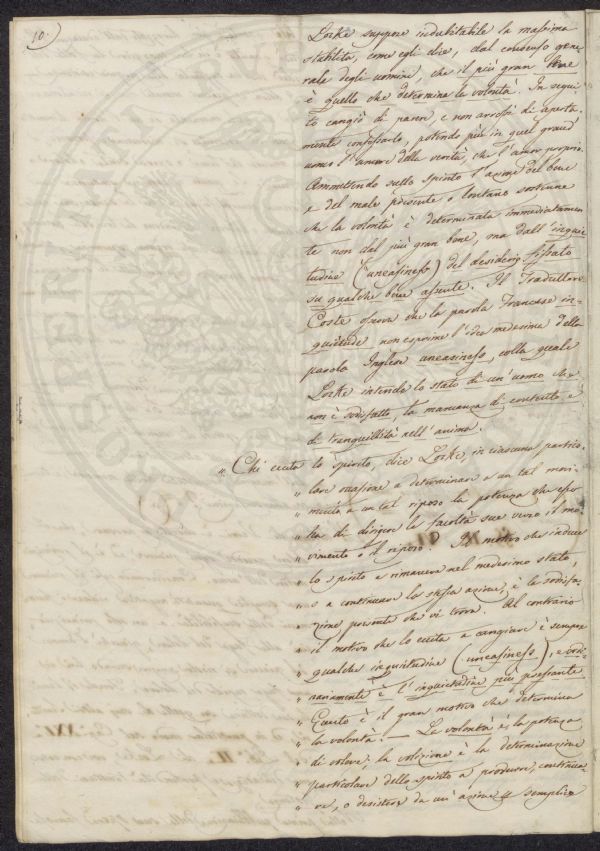 10.
Locke suppone indubitabile la massima
stabilita, come egli dice, dal consenso gene
rale degli uomini, che il più gran bene
è quello che determina la volontà. In segui
to cangiò di parere, e non arrossì di aperta
mente confessarlo, potendo più in quel grand'
uomo l'amore della verità, che l'amor proprio.
Ammettendo sullo spirito l'azione del bene
e del male presente o lontano sostiene
che la volontà è determinata immediatamen
te non dal più gran bene, ma dall'inquie
tudine (uneasiness) del desiderio fissato
su qualche bene assente. Il Traduttore
Coste osserva che la parola Francese in-
quiétude non esprime l'idea medesima della
parola Inglese uneasiness, colla quale
Locke intende lo stato di un'uomo che
non è sodisfatto, la mancanza di contento, e
di tranquillità nell'animo.
„ Chi eccita lo spirito, dice Locke, in ciascuna partico-
„ lare occasione a determinare a un tal mo-
„ a un tal riposo la potenza che es
„ ha di dirigere le facoltà sue verso il mo-
„ vimento o il riposo? Il motivo che induce
„ lo spirito a rimanere nel medesimo stato
„ o a continuare la stessa azione, è la sodisfa-
„ zione presente che vi trova. Al contrario
„ il motivo che lo eccita a cangiare è sempre
„ qualche inquietudine (uneasiness), e ordi-
„ nariamente è l'inquietudine più pressante
„ Questo è il gran motivo che determina
„ la volontà. — La volontà è la potenza
„ di volere; la volizione è la determinazione
„ particolare dello spirito a produrre, continua-
„ re, o desistere da un'azione semplice